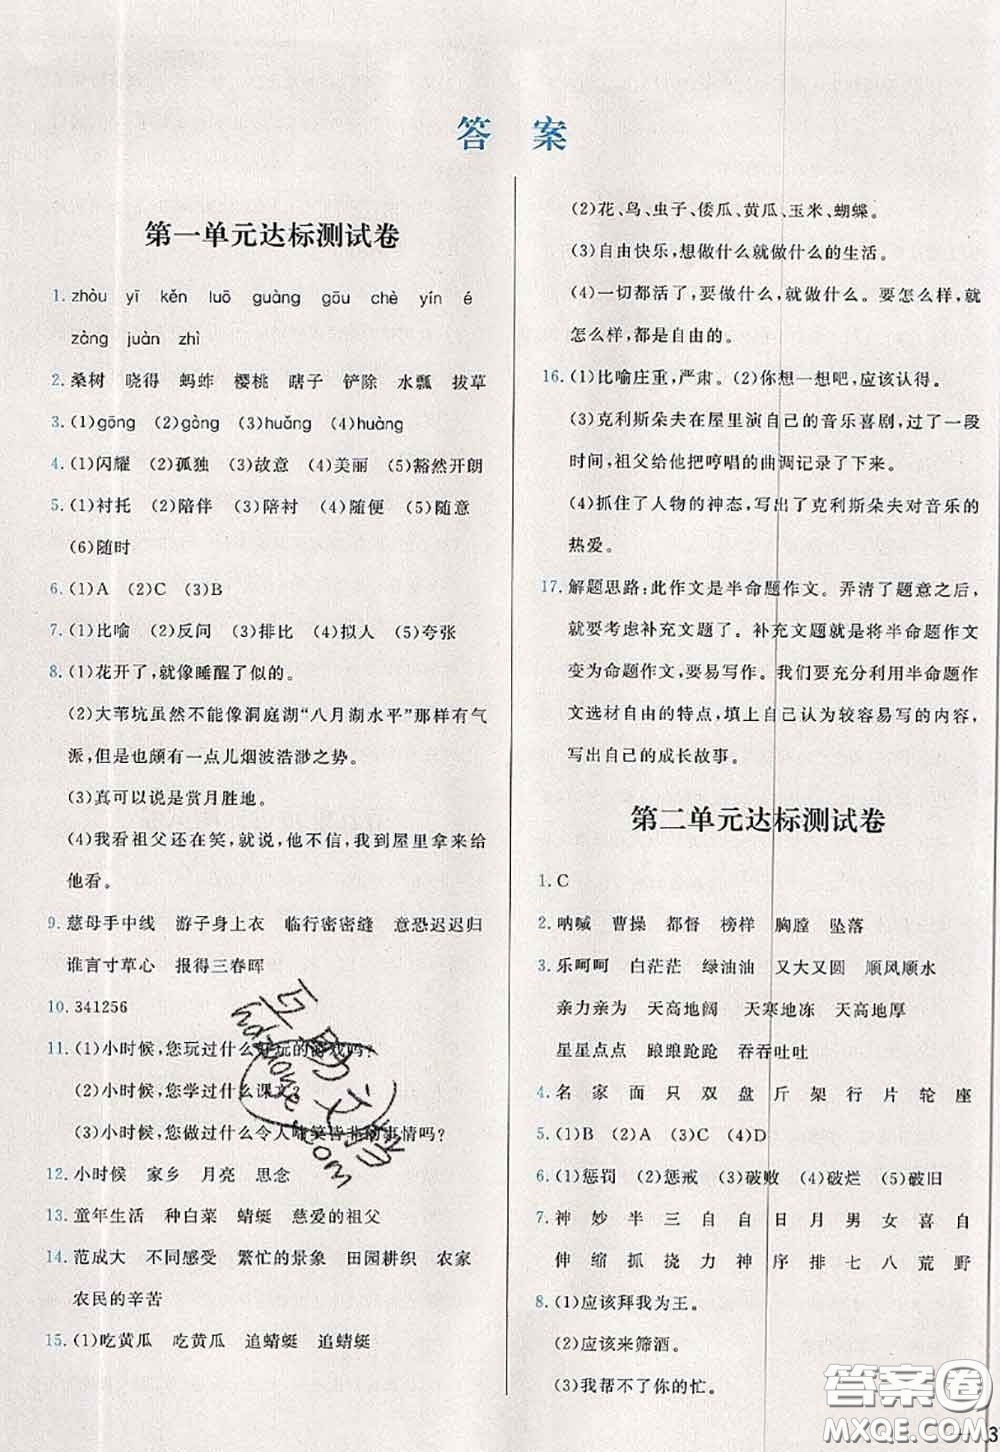 答 案
第一单元达标测试卷
1. zhòu yī kěn luō guàng gōu chè yín é
zàng juàn zhì
2. 桑树 晓得 蚂蚱 樱桃 瞎子 铲除 水瓢 拔草
3. (1)gōng (2)gòng (3)huǎng (4)huàng
4. (1)闪耀 (2)孤独 (3)故意 (4)美丽 (5)豁然开朗
5. (1)衬托 (2)陪伴 (3)陪衬 (4)随便 (5)随意
(6)随时
6. (1)A (2)C (3)B
7. (1)比喻 (2)反问 (3)排比 (4)拟人 (5)夸张
8. (1)花开了,就像睡醒了似的。
(2)大苇坑虽然不能像洞庭湖“八月湖水平”那样有气
派,但也颇有一点儿烟波浩渺之势。
(3)真可以说是赏月胜地。
(4)我看祖父还在笑,就说,他不信,我到屋里拿来给
他看。
9. 慈母手中线 游子身上衣 临行密密缝 意恐迟迟归
谁言寸草心 报得三春晖
10. 341256
11. (1)小时候,您玩过什么好玩的游戏吗?
(2)小时候,您学过什么课文?
(3)小时候,您做过什么令人啼笑皆非的事情吗?
12. 小时候 家乡 月亮 思念
13. 童年生活 种白菜 蜻蜓 慈爱的祖父
14. 范成大 不同感受 繁忙的景象 田园耕织 农家
农民的辛苦
15. (1)吃黄瓜 吃黄瓜 追蜻蜓 追蜻蜓
(2)花、鸟、虫子、倭瓜、黄瓜、玉米、蝴蝶。
(3)自由快乐,想做什么就做什么的生活。
(4)一切都活了,要做什么,就做什么。要怎么样,就
怎么样,都是自由的。
16. (1)比喻庄重,严肃。 (2)你想一想吧,应该认得。
(3)克利斯朵夫在屋里演自己的音乐喜剧,过了一段
时间,祖父给他把哼唱的曲调记录了下来。
(4)抓住了人物的神态,写出了克利斯朵夫对音乐的
热爱。
17. 解题思路:此作文是半命题作文。弄清了题意之后,
就要考虑补充文题了。补充文题就是将半命题作文
变为命题作文,要易写作。我们要充分利用半命题作
文选材自由的特点,填上自己认为较容易写的内容,
写出自己的成长故事。
第二单元达标测试卷
1. C
2. 呐喊 曹操 都督 榜样 胸膛 坠落
3. 乐呵呵 白茫茫 绿油油 又大又圆 顺风顺水
亲力亲为 天高地阔 天寒地冻 天高地厚
星星点点 踉踉跄跄 吞吞吐吐
4. 名 家 面 只 双 盘 斤 架 行 片 轮 座
5. (1)B (2)A (3)C (4)D
6. (1)惩罚 (2)惩戒 (3)破败 (4)破烂 (5)破旧
7. 神 妙 半 三 自 自 日 月 男 女 喜 自
伸 缩 抓 挠 力 神 序 排 七 八 荒 野
8. (1)应该拜我为王。
(2)应该来筛酒。
(3)我帮不了你的忙。
答案圈
MXQE.COM
3